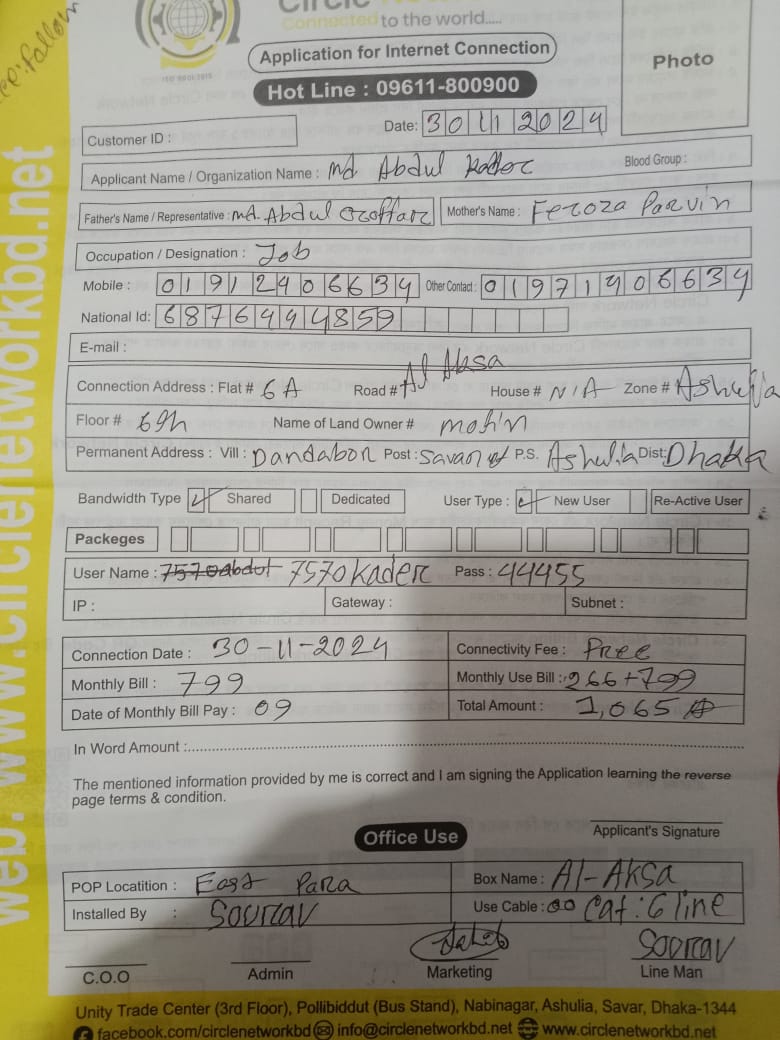 Connected to the world.....
ISO 9001:2015
Application for Internet Connection
Hot Line : 09611-800900
Photo
Date: 30 11 2024
Customer ID :
Applicant Name / Organization Name : Md Abdul Kader Blood Group :
Father's Name / Representative : Md. Abdul Goffar Mother's Name : Feroza Parvin
Occupation / Designation : Job
Mobile : 01912406634 Other Contact : 01971406634
National Id: 6876444859
E-mail :
Connection Address : Flat # 6A Road # Al Aksa House # N/A Zone # Ashulia
Floor # 6th Name of Land Owner # mohin
Permanent Address : Vill : Dandabor Post : Savar P.S. Ashulia Dist: Dhaka
Bandwidth Type Shared Dedicated User Type : New User Re-Active User
Packeges
User Name : 7570abdul 7570Kader Pass : 44455
IP : Gateway : Subnet :
Connection Date : 30-11-2024 Connectivity Fee : Free
Monthly Bill : 799 Monthly Use Bill : 266+799
Date of Monthly Bill Pay : 09 Total Amount : 1,065
In Word Amount :
The mentioned information provided by me is correct and I am signing the Application learning the reverse
page terms & condition.
Applicant's Signature
Office Use
POP Locatition : East Para Box Name : Al-Aksa
Installed By : Sourav Use Cable : Cat : 6 line
Sourav
C.O.O Admin Marketing Line Man
Unity Trade Center (3rd Floor), Pollibiddut (Bus Stand), Nabinagar, Ashulia, Savar, Dhaka-1344
facebook.com/circlenetworkbd info@circlenetworkbd.net www.circlenetworkbd.net
web: www.circlenetworkbd.net